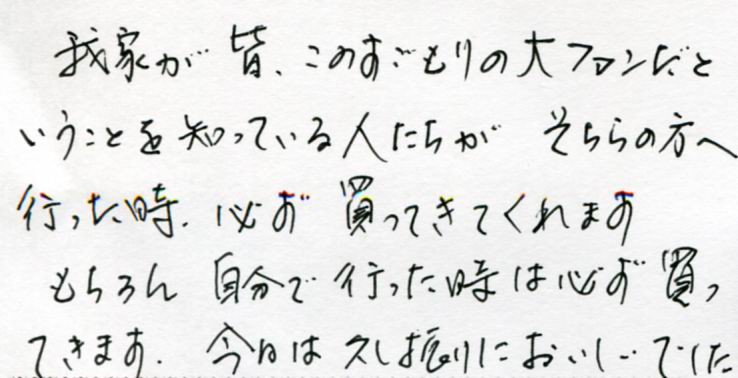 我家が皆、このすごもりの大ファンだと
いうことを知っている人たちが そちらの方へ
行った時、必ず買ってきてくれます
もちろん 自分で行った時は必ず買っ
てきます。今日は久し振りにおいし…でした